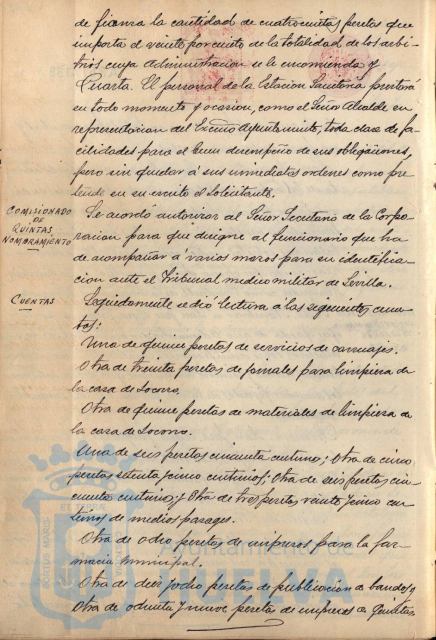 de fianza la cantidad de cuatrocientas pesetas que
importa el veinte por ciento de la totalidad de los arbi-
trios cuya administracion se le encomienda y
Cuarta. El personal de la Estacion Sanitaria prestará
en todo momento y ocasion, como el Señor Alcalde en
representacion del Excmo Ayuntamiento, toda clase de fa-
cilidades para el buen desempeño de sus obligaciones,
pero sin quedar á sus inmediatas ordenes como pre-
tende en su escrito el solicitante.
COMISIONADO
DE
QUINTAS,
NOMBRAMIENTO
Se acordó autorizar al Señor Secretario de la Corpo-
racion para que designe al funcionario que ha
de acompañar á varios mozos para su identifica-
cion ante el Tribunal medico militar de Sevilla.
CUENTAS
Seguidamente se dió lectura á las siguientes cuen-
tas:
Una de quince pesetas de servicios de carruajes.
Otra de treinta pesetas de jornales para limpieza de
la casa de Socorro.
Otra de quince pesetas de materiales de limpieza de
la casa de Socorro.
Una de seis pesetas cincuenta centimos; Otra de cinco
pesetas setenta y cinco centimos; Otra de seis pesetas cin-
cuenta centimos; y Otra de tres pesetas veinte y cinco cen-
timos de medios pasages.
Otra de ocho pesetas de impresos para la far-
macia municipal.
Otra de diez y ocho pesetas de publicacion de bandos y
Otra de ochenta y nueve pesetas de impresos de Quintas
Ayuntamiento de
HUELVA